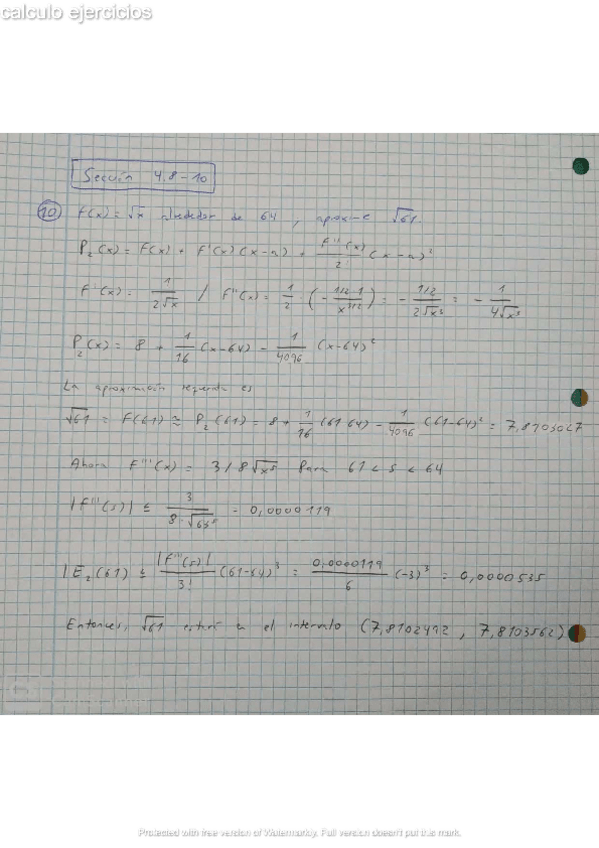 calculo ejercicios
Sección 4.8-10
10 F(x) = √x alrededor de 64, aproxime √61.
P₂(x) = F(x) + F'(x)(x-a) + F''(x)/2! (x-a)²
F'(x) = 1/(2√x) / F''(x) = 1/2 · (- (1/2·1)/x^(3/2)) = - (1/2)/(2√x³) = - 1/(4√x³)
P₂(x) = 8 + 1/16 (x-64) - 1/4096 (x-64)²
La aproximación requerida es
√61 = F(61) ≅ P₂(61) = 8 + 1/16 (61-64) - 1/4096 (61-64)² = 7,8103027
Ahora F'''(x) = 3/8√x⁵ Para 61 < s < 64
|F'''(s)| ≤ 3/(8·√61⁵) = 0,0000119
|E₂(61)| ≤ |F'''(s)|/3! (61-64)³ = 0,0000119/6 (-3)³ = 0,0000535
Entonces, √61 estará en el intervalo (7,8102492, 7,8103562)
Protected with free version of Watermarkly. Full version doesn't put this mark.